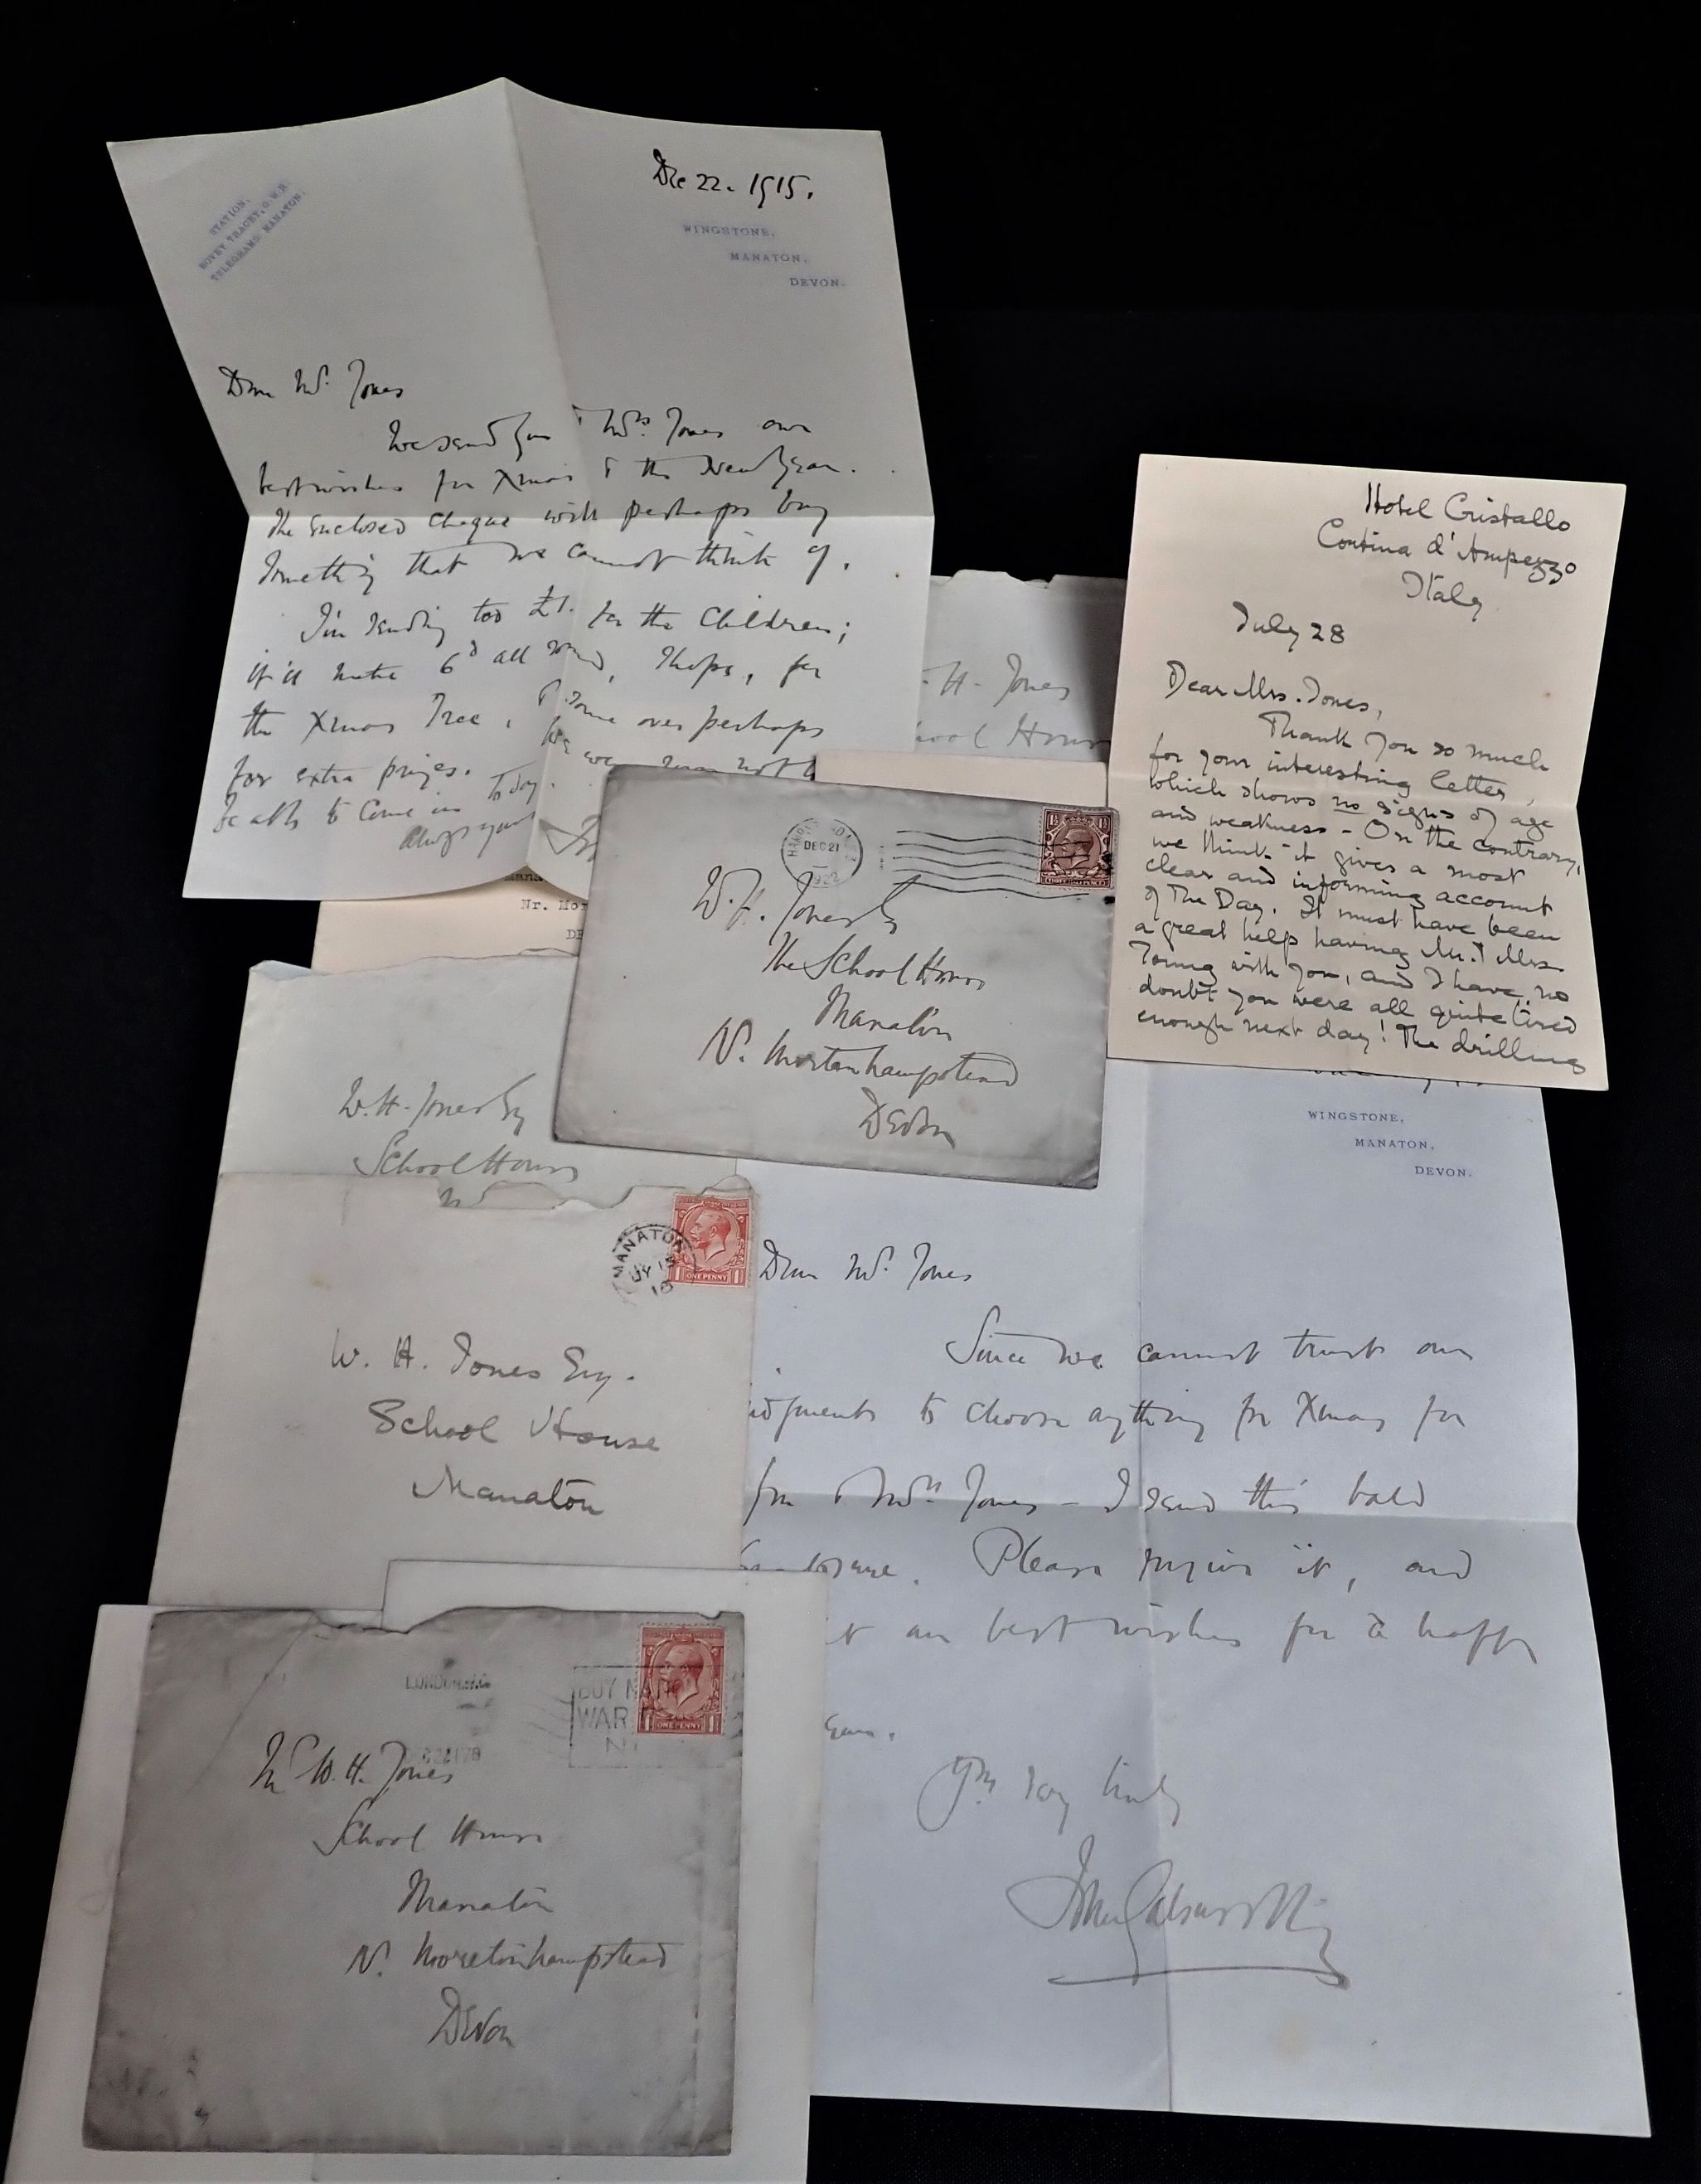 Dec 22. 1915.
STATION,
BOVEY TRACEY, G.W.R.
TELEGRAMS MANATON.
WINGSTONE,
MANATON,
DEVON.
Dear Mr. Jones
We send you & Mrs. Jones our
best wishes for Xmas & the New Year.
The enclosed cheque will perhaps buy
something that we cannot think of.
I'm sending too £1. for the Children;
it'll make 6d all round, I hope, for
the Xmas Tree, & some over perhaps
for extra prizes. We
be able to come in Today.
Always yours
Hotel Cristallo
Cortina d'Ampezzo
Italy
July 28
Dear Mrs. Jones,
Thank you so much
for your interesting letter,
which shows no signs of age
and weakness - On the contrary,
we think it gives a most
clear and informing account
of The Day. It must have been
a great help having Mr. & Mrs.
Young with you, and I have no
doubt you were all quite tired
enough next day! The drilling
H. Jones
Nr. Mor
DEC 21
1922
W.H. Jones Esq
The School House
Manaton
Nr. Mortonhampstead
Devon
W.H. Jones Esq
School House
MANATON
JY 13
ONE PENNY
W. H. Jones Esq.
School House
Manaton
WINGSTONE,
MANATON,
DEVON.
Dear Mr. Jones
Since we cannot trust our
judgments to choose anything for Xmas for
you & Mrs. Jones - I send this bald
enclosure. Please forgive it, and
our best wishes for a happy
Year.
Yrs very truly
John Galsworthy
LONDON
BUY NA
WAR
ONE PENNY
Mr W. H. Jones
School House
Manaton
Nr. Moretonhampstead
Devon